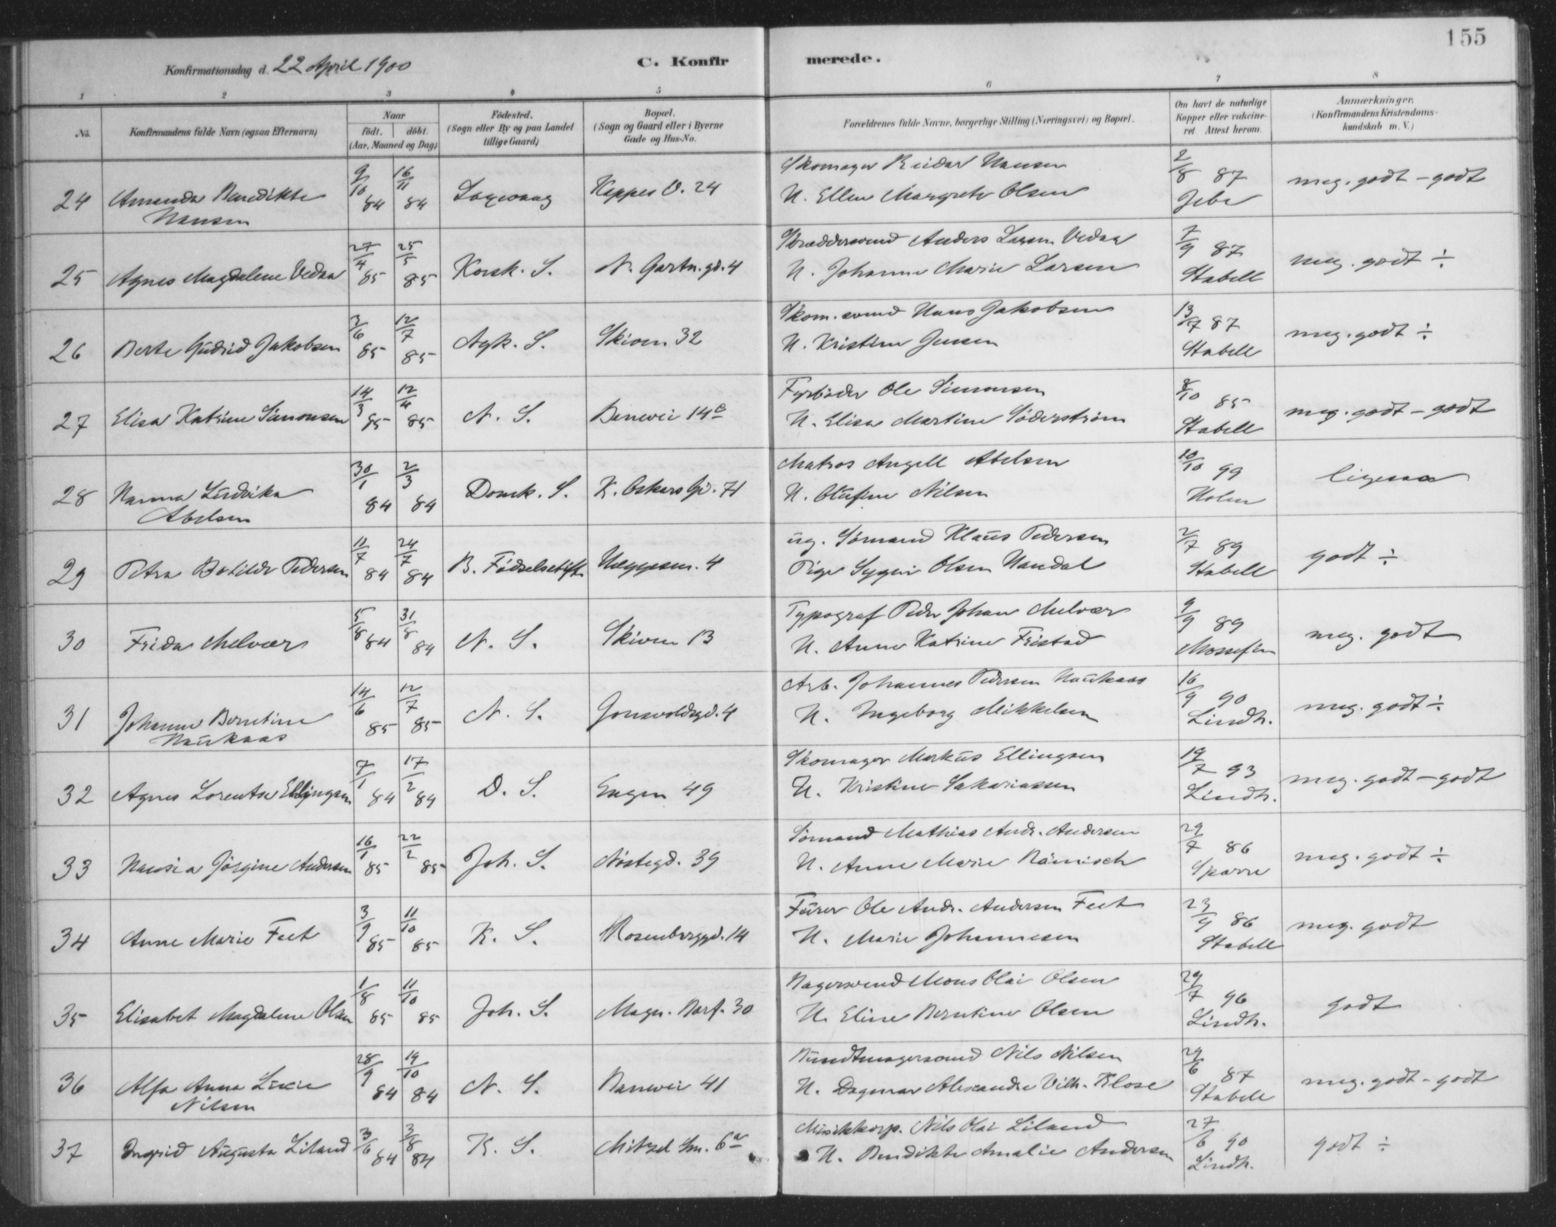 155
Konfirmationsdag d. 22 April 1900
C. Konfirmerede.
1 2 3 4 5 6 7 8
No.
Konfirmandens fulde Navn (ogsaa Efternavn)
Naar
født. døbt.
(Aar, Maaned og Dag)
Fødested.
(Sogn eller By og paa Landet
tillige Gaard)
Bopæl.
(Sogn og Gaard eller i Byerne
Gade og Hus-No.
Forældrenes fulde Navne, borgerlige Stilling (Næringsvei) og Bopæl.
Om havt de naturlige
Kopper eller vakcine-
ret Attest herom.
Anmærkninger.
(Konfirmandens Kristendoms-
kundskab m. V.)
24 Amanda Benedikte Hansen 9/10 84 16/11 84 Laxevaag Keppes V. 24
Skomager Reidar Hansen
H. Ellen Margrete Olsen
2/8 87 Jebe
meg. godt – godt
25 Agnes Magdalene Vedaa 27/4 85 25/5 85 Korsk. S. N. Gartn.gd. 4
Skræddersvend Anders Larsen Vedaa
H. Johanne Marie Larsen
7/9 87 Stabell
meg. godt ÷
26 Berte Gudrid Jakobsen 3/6 85 12/7 85 Nyk. S. Skiven 32
Skom.svend Hans Jakobsen
H. Kristine Jensen
13/7 87 Stabell
meg. godt ÷
27 Elisa Katrine Simonsen 14/3 85 12/4 85 N. S. Banevei 14 a
Fyrbøder Ole Simonsen
H. Elisa Martine Söderström
8/10 85 Stabell
meg. godt – godt
28 Hanna Ludvika Abelsen 30/1 84 2/3 84 Domk. S. K. Oskars Gd. 71
Matros Angell Abelsen
H. Olufine Nilsen
10/10 99 Holm
ligesaa
29 Petra Botilde Pedersen 11/7 84 24/7 84 B. Fødselsstift. Heggesm. 4
ug. Sømand Klaus Pedersen
Pige Sygni Olsen Handal
2/7 89 Stabell
godt ÷
30 Frida Melvær 5/8 84 31/8 84 N. S. Skiven 13
Typograf Peder Johan Melvær
H. Anne Katrine Fristad
9/9 89
meg. godt
31 Johanne Berntine Haukaas 14/6 85 12/7 85 N. S. Jonsvoldsgd. 4
Arb. Johannes Pedersen Haukaas
H. Ingeborg Mikkelsen
16/9 90 Lindh.
meg. godt ÷
32 Agnes Lorentse Ellingsen 7/1 84 17/2 84 D. S. Engen 49
Skomager Markus Ellingsen
H. Kristine Sakariassen
19/7 93 Lindh.
meg. godt – godt
33 Jørgine Andersen 16/1 85 22/2 85 Joh. S. Nøstegd. 39
Sømand Mathias Andr. Andersen
H. Anne Marie Bämisch
29/7 86 Sparre
meg. godt ÷
34 Anne Marie Feet 3/9 85 11/10 85 K. S. Rosenberggd. 14
Fører Ole Andr. Andersen Feet
H. Marie Johannesen
23/9 86 Stabell
meg. godt
35 Elisabet Magdalene Olsen 1/8 85 11/10 85 Joh. S. Magn. Barf. 30
Bagersvend Mons Olai Olsen
H. Eline Berntine Olsen
29/7 96 Lindh.
godt
36 Alfa Anna Lucie Nilsen 28/9 84 19/10 84 N. S. Banevei 41
Bundtmagersvend Nils Nilsen
H. Dagmar Alexandra Vilh. Klose
29/6 87 Stabell
meg. godt – godt
37 Ingrid Augusta Liland 3/6 84 3/8 84 K. S. Mitzel Sm. 6 a
Musikkorp. Nils Olai Liland
H. Bendikte Amalie Andersen
27/6 90 Lindh.
godt ÷